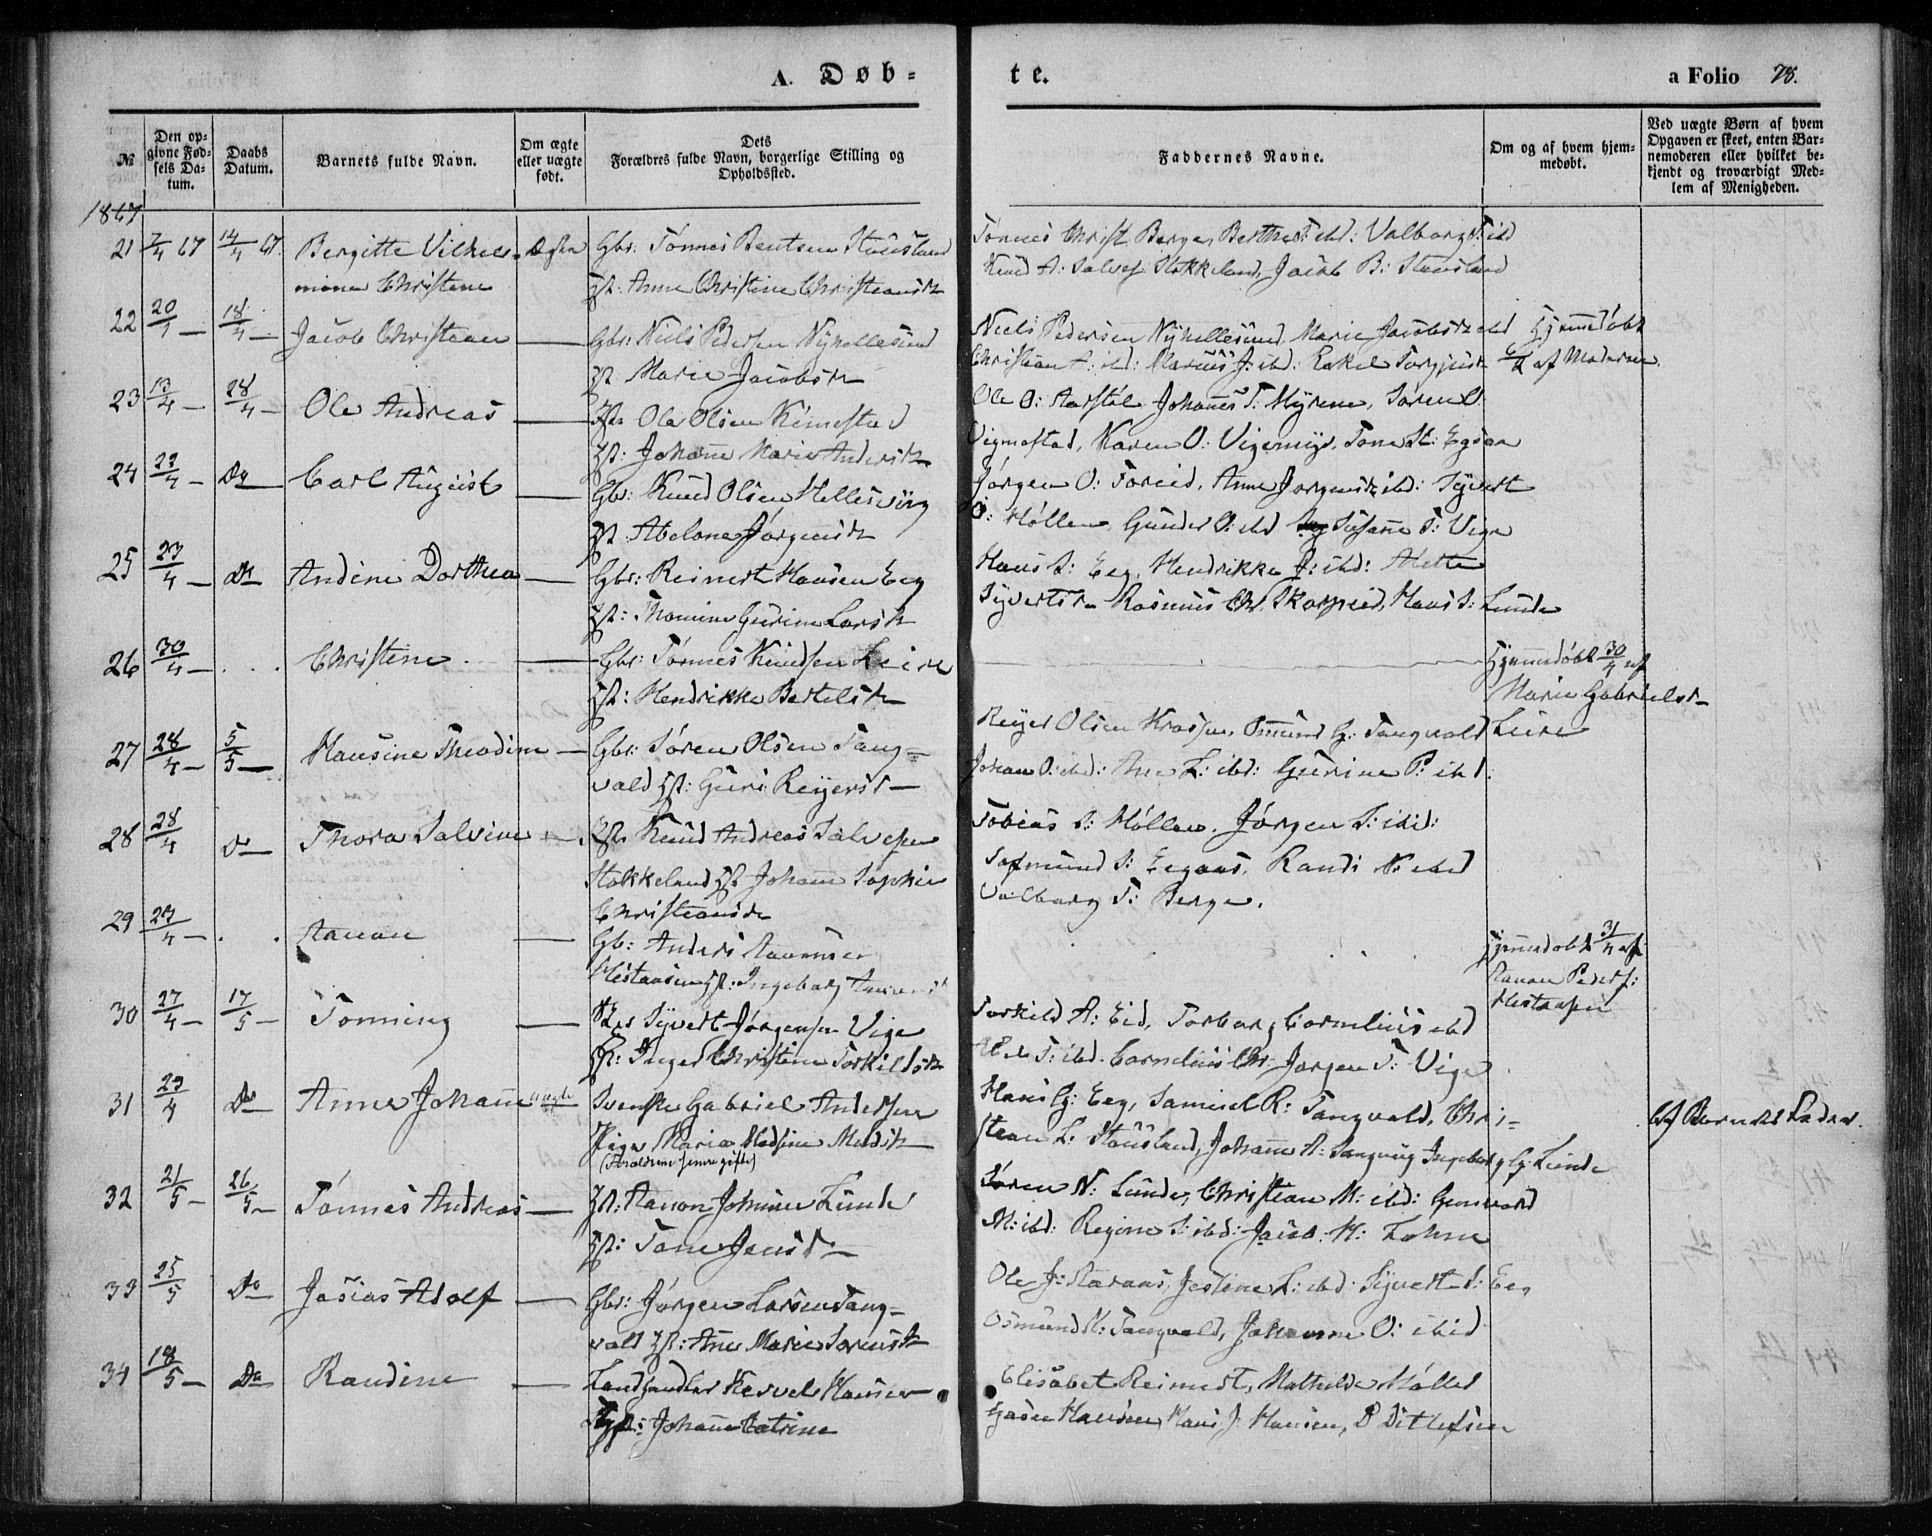 A. Døb=
te.
a Folio 78.
№
Den op=
givne Fød=
sels Da=
tum.
Daabs
Datum.
Barnets fulde Navn.
Om ægte
eller uægte
født.
Dets
Forældres fulde Navn, borgerlige Stilling og
Opholdssted.
Faddernes Navne.
Om og af hvem hjem=
medøbt.
Ved uægte Børn af hvem
Opgaven er skeet, enten Bar=
nemoderen eller hvilket be=
kjendt og troværdigt Med=
lem af Menigheden.
1867
21 7/4 67 14/4 67. Bergitte Vilhel= Ægte Gbr: Tønnes Bentsen Stausland
mine Christene Hst: Anne Christine Christiansdtr
Tønnes Christ. Berge, Berthe T: ibd: Valborg T: ibd
Knud A: Salves. Stokkeland, Jacob B: Stausland
22 20/1 — 18/4 — Jacob Christian — Gbr: Niels Pedersen Nyhellesund
Hst: Marie Jacobsdtr
Niels Pedersen Nyhellesund, Marie Jacobsdtr ibd
Christian A: ibd: Marius J: ibd: Torgjusdtr
Hjemmedøbt
af Moderen.
23 13/4 — 28/4 — Ole Andreas — Ole Olsen Kimestad
Hst: Johanne Marie Andersdtr
Ole O: Aarstøl Johannes T: Myrene, Søren O:
Vigmostad, Karen O: Vigemyr, Tone
24 23/4 — Do Carl August — Gbr: Knud Olsen Hellesvig
Hst: Abelone Jørgensdtr
Jørgen O: Foreid, Anne Jørgensdtr ibd: Syvert
O: Møllen Gunder O: ibd Susanne T: Vige
25 23/4 — Do Andine Dorthea — Gbr: Reinert Hansen Eeg
Hst: Thomine Gurine Larsdtr
Hans S: Eeg, Hendrikke J: ibd: Mette
Syvertsdtr Rasmus Chr. Skarpeid, Hans S: Lunde
26 30/4 — . . . Christine — Gbr: Tønnes Knudsen Leire
Hst: Hendrikke Bertelsdtr
Hjemmedøbt 30/4 af
Marie Gabrielsdtr
Leire
27 28/4 — 5/5 — Hansine Theodine — Gbr: Søren Olsen Tang=
vald Hst: Guri Reijersdtr
Reijer Olsen Krossen, Omund G: Tangvald
Johan O: ibd: Ane L: ibd: Gurine P: ibd:
28 28/4 Do Thora Salvine — Knud Andreas Salvesen
Stokkeland Hst Johanne Sophie
Christiansdtr
Tobias S: Møllen, Jørgen S: ibid:
S: Eegaas, Randi N: ibd
Valborg T: Berge.
29 27/4 — . . Aanon — Gb: Anders Aanonsen
Hestaasen Hst: Ingeborg
Hjemmedøbt 31/4 af
Aanon Peders:
Hestaasen
30 27/4 — 17/5 — Tønning — Syvert Jørgensen Vige
Hst: Inger Christine Torkildsdtr
Torkild A: Eid, Torborg Cornelius ibd
T: ibd. Cornelius Chr: Jørgen T: Vige
31 29/4 Do Anne Johanne uægte Svenske Gabriel Andersen
Pige Maria Madsine
(Forældrene senere gifte)
Hans G: Eeg, Samuel R: Tangvald, Chri=
stian L: Stausland, Johanne A: Sangvig Ingeborg G: Lunde
Af Barnets Fader.
32 21/5 — 26/5 — Tønnes Andreas — Hst: Aanon Johnsen Lunde
Hst: Tone Jensdtr
Søren N: Lunde, Christian M: ibd: Gunvald
M: ibd: Regine S: ibd: Jacob H: Lohne
33 25/5 Do Josias Adolf — Gbr: Jørgen Larsen Tang=
vald Hst: Ane Marie Sørensdtr
Ole J: Aaraas, Jestine L: ibd: Syvert S: Eeg
Osmund K: Tangvald, Johanne O: ibid
34 18/5 — Do Randine — Landhandler Kervel Hansen
Hst: Johanne Catrine
Elisabet Reinert, Mathilde Møller
Hansen, Hans J: Hansen, P Ditlefsen